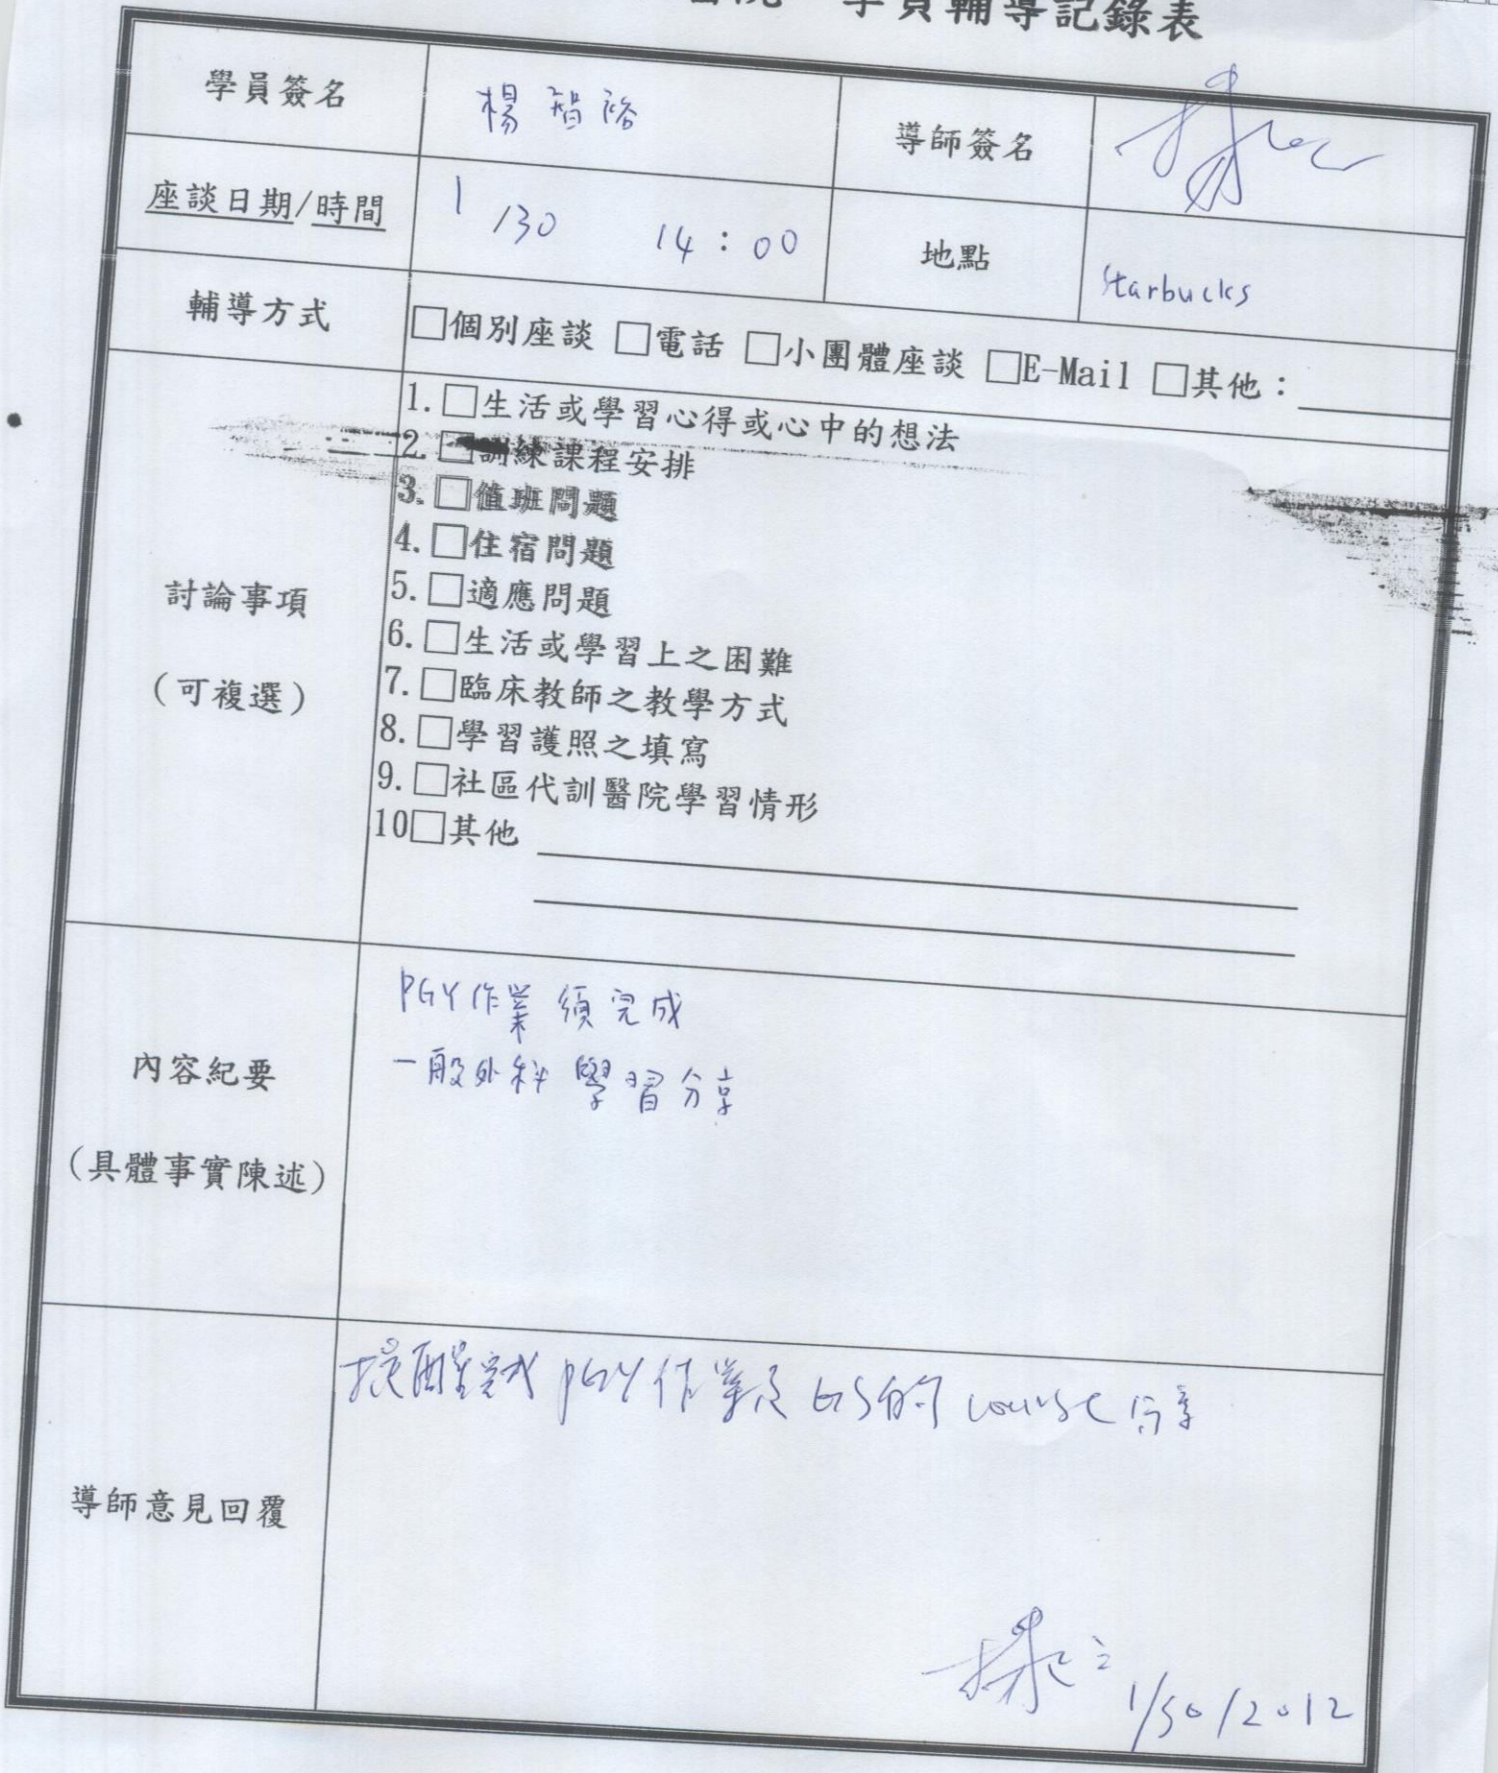 學員輔導記錄表
學員簽名 楊智裕 導師簽名
座談日期/時間 1/30 14:00 地點 Starbucks
輔導方式 □個別座談 □電話 □小團體座談 □E-Mail □其他:
1.□生活或學習心得或心中的想法
2.□訓練課程安排
3.□值班問題
4.□住宿問題
5.□適應問題
6.□生活或學習上之困難
7.□臨床教師之教學方式
8.□學習護照之填寫
9.□社區代訓醫院學習情形
10□其他
討論事項
(可複選)
PGY作業須完成
一般外科學習分享
內容紀要
(具體事實陳述)
提醒完成PGY作業及GS的course分享
導師意見回覆
1/30/2012